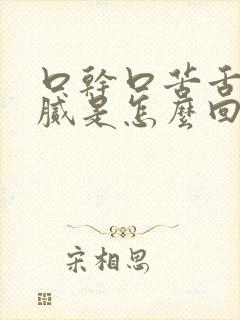 口幹口苦舌
膩是怎麼回
宋相思